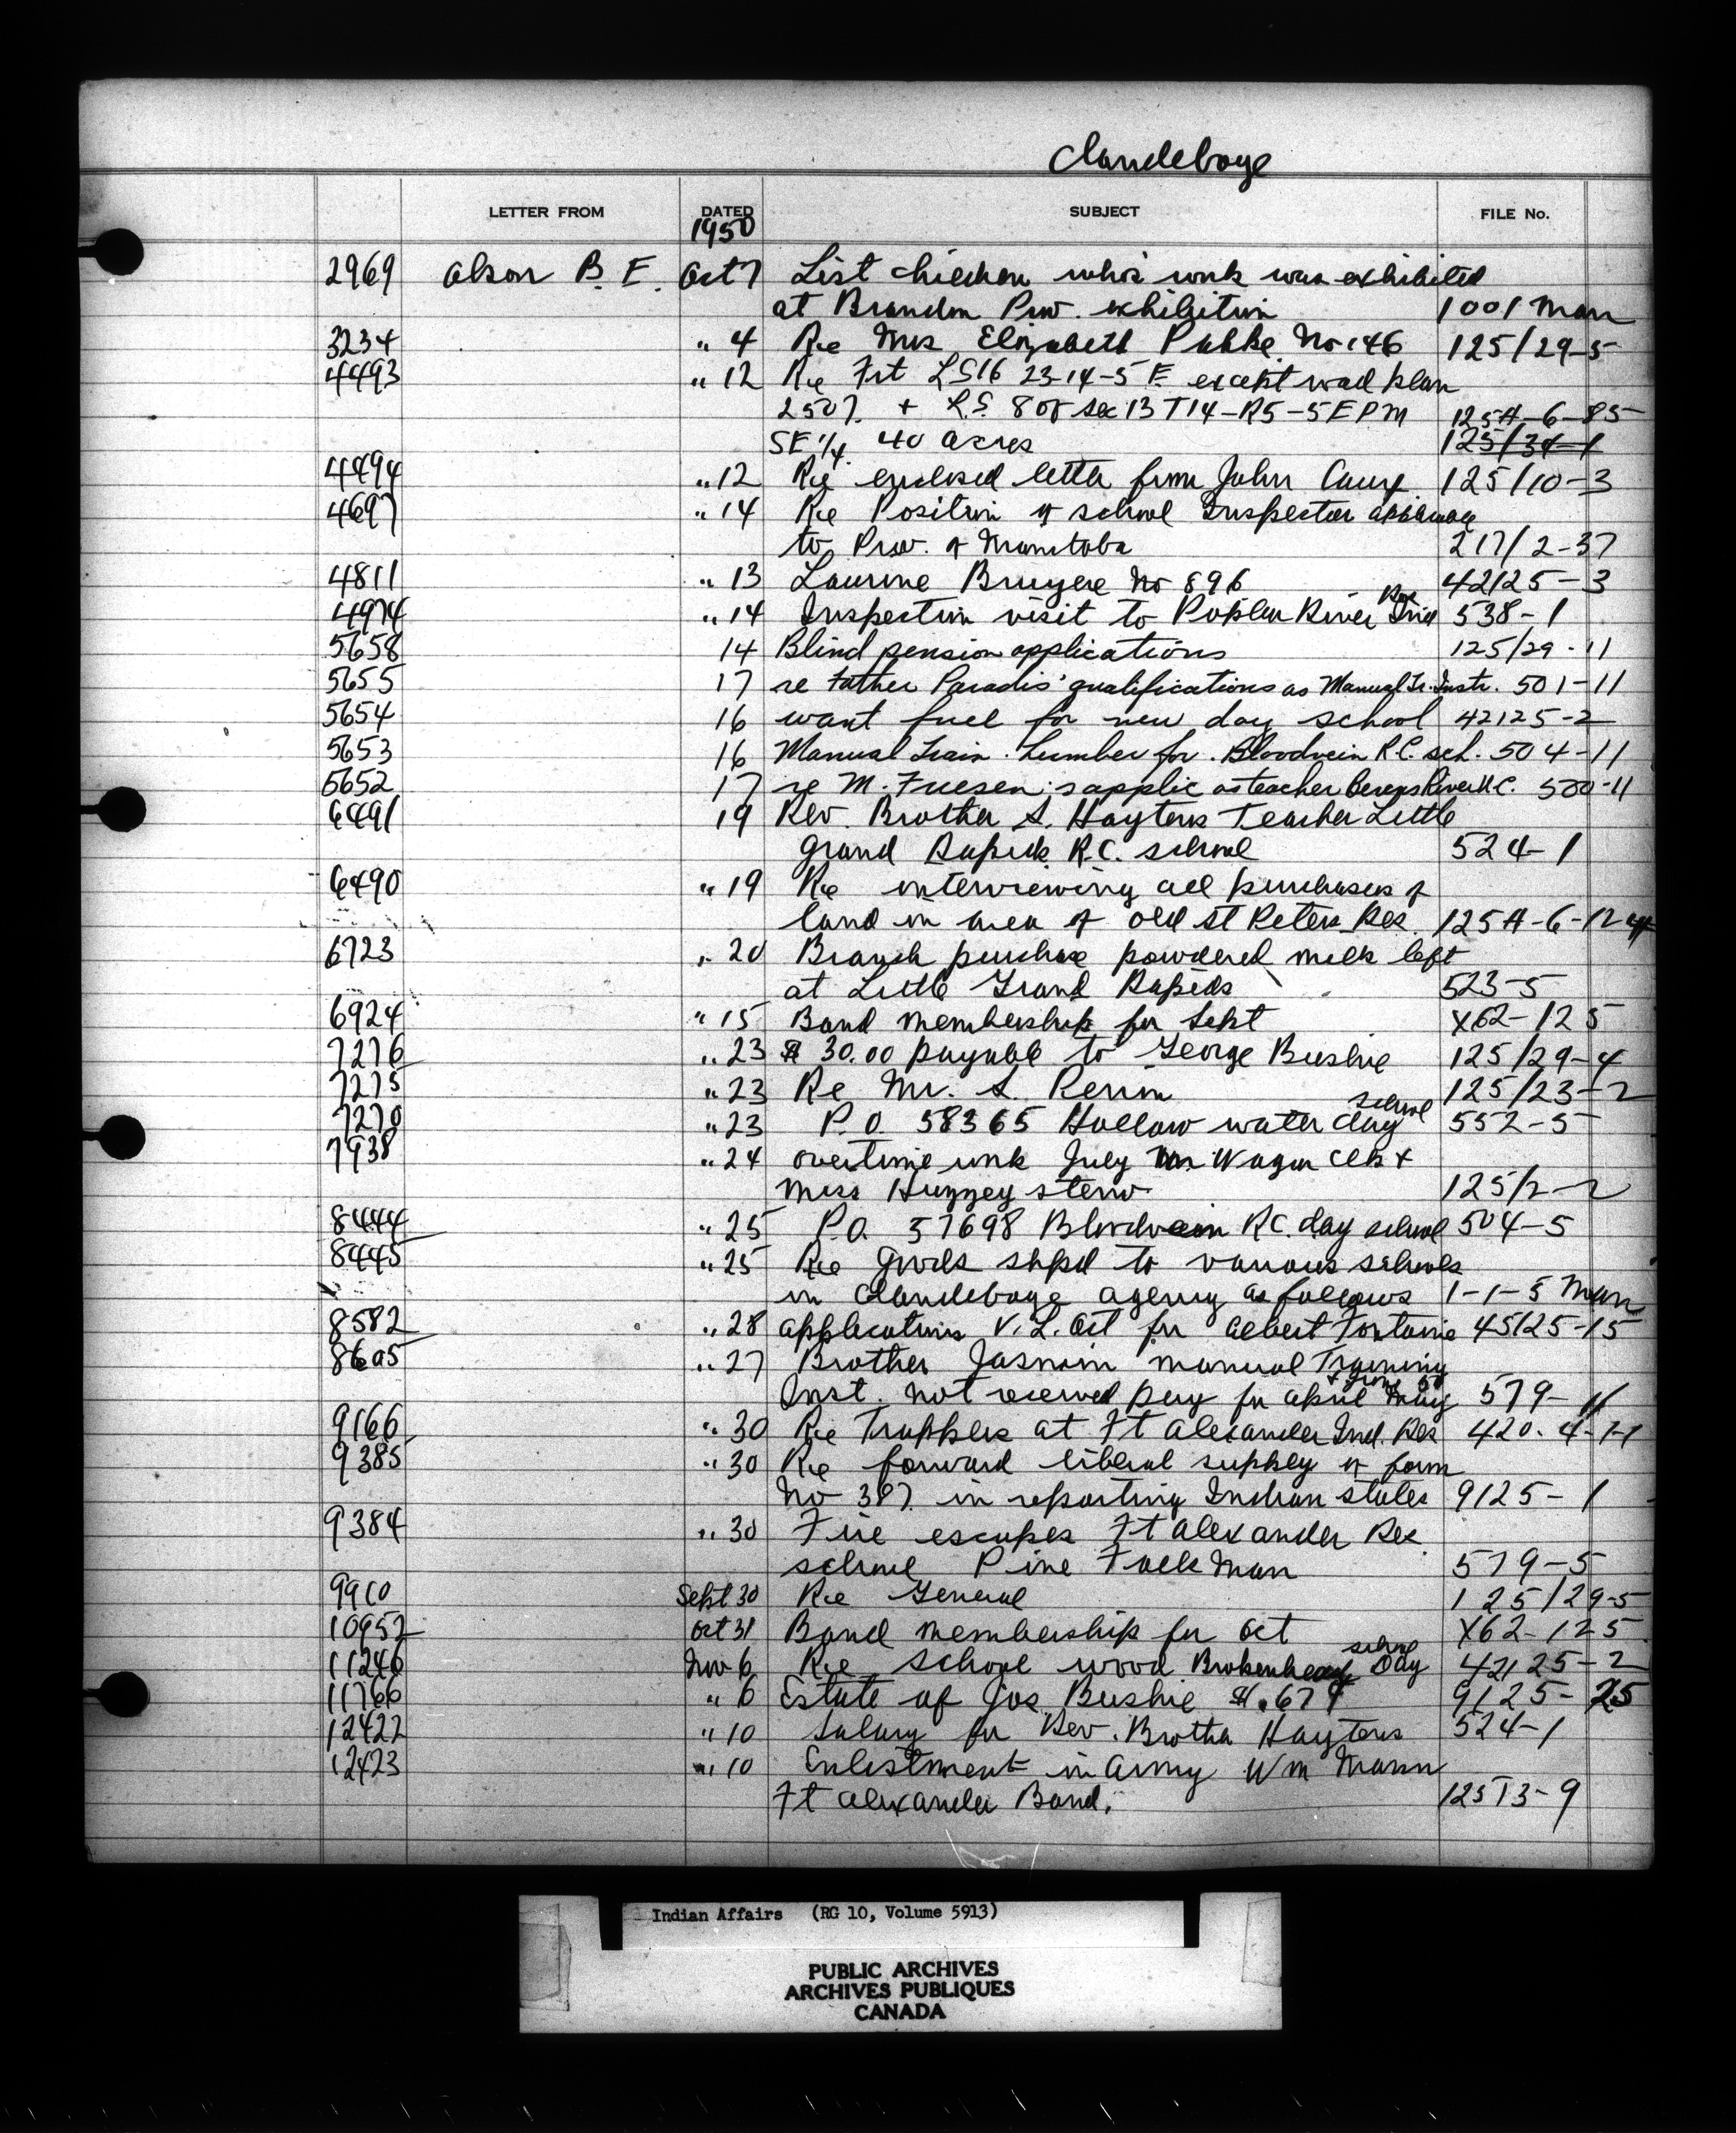 Clandeboye
LETTER FROM DATED SUBJECT FILE No.
1950
2969 Olson B. E. Oct 7 List children who's work was exhibited
at Brandon Prov. exhibition 1001 Man
3234 " 4 Re Mrs Elizabeth No 146 125/29-5
4493 " 12 Re Frt LS16 23-14-5 E except road plan
2507 + L.S. 8 of sec 13 T14-R5-5EPM 125A-6-85
SE 1/4 40 acres 125/34-1
4494 " 12 Re enclosed letter from John 125/10-3
4697 " 14 Re Position of school Inspector
to Prov. of Manitoba 217/2-37
4811 " 13 Laurine Bruyere No 896 42125-3
4974 " 14 Inspection visit to Poplar River Ind Res 538-1
5658 14 Blind pension applications 125/29-11
5655 17 re Father Paradis' qualifications as Manual Tr. Instr. 501-11
5654 16 want fuel for new day school 42125-2
5653 16 Manual Train. Lumber for Bloodvein R.C. sch. 504-11
5652 17 re M. Friesen's applic as teacher Berens River U.C. 500-11
6491 19 Rev. Brother S. Hayters Teacher Little
Grand Rapids R.C. school 524-1
6490 " 19 Re interviewing all purchases of
land in area of old St Peters Res. 125A-6-12
6723 " 20 Branch purchase powdered milk left
at Little Grand Rapids 523-5
6924 " 15 Band membership for Sept X62-125
7276 " 23 $ 30.00 payable to George Bushie 125/29-4
7275 " 23 Re Mr. S. 125/23-2
7270 " 23 P.O. 58365 Hollow water day school 552-5
7938 " 24 overtime work July Mr Wagur Clk +
Miss Huzzey steno 125/2-2
8444 " 25 P.O. 57698 Bloodvein RC. day school 504-5
8445 " 25 Re goods shpd to various schools
in Clandeboye agency as follows 1-1-5 Man
8582 " 28 applications V.L. Act for Albert Fontaine 45125-15
8605 " 27 Brother Jasmin manual Training
Inst. not received pay for April May + June 50 579-11
9166 " 30 Re Trappers at Ft Alexander Ind. Res 420-4-1-1
9385 " 30 Re forward liberal supply of form
No 387 in reporting Indian states 9125-1
9384 " 30 Fire escapes Ft Alexander Res
school Pine Falls Man 579-5
9910 Sept 30 Re General 125/29-5
10952 Oct 31 Band membership for Oct X62-125
11246 Nov 6 Re School wood Brokenhead Day school 42125-2
11766 " 6 Estate of Jos. Bushie #.674 9125-25
12422 " 10 Salary for Rev. Brother Hayters 524-1
12423 " 10 Enlistment in Army Wm Mann
Ft Alexander Band. 12513-9
Indian Affairs (RG 10, Volume 5913)
PUBLIC ARCHIVES
ARCHIVES PUBLIQUES
CANADA